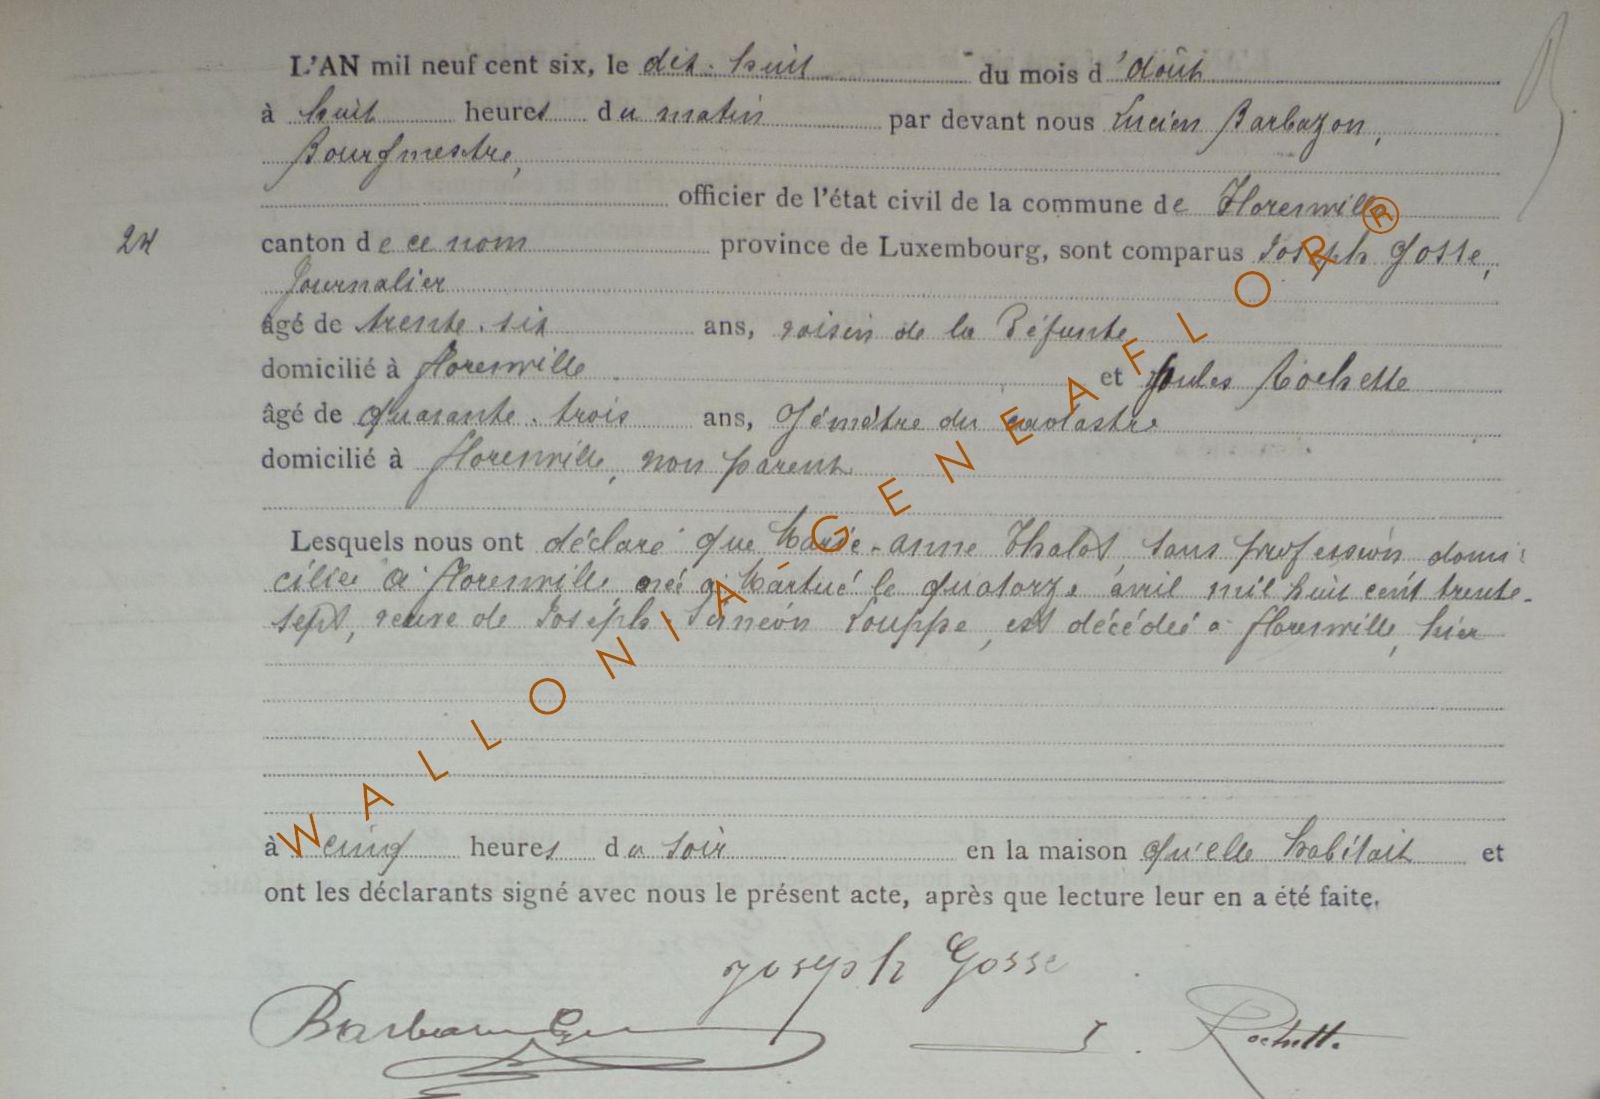 L'AN mil neuf cent six, le dix-huit du mois d'août
à huit heures du matin par devant nous Lucien Barbazon,
Bourgmestre,
officier de l'état civil de la commune de Florenville
24
canton de ce nom province de Luxembourg, sont comparus Joseph Gosse,
Journalier
âgé de trente-six ans, voisin de la Défunte
domicilié à Florenville et Joules Rochette
âgé de quarante-trois ans, Géomètre du cadastre
domicilié à Florenville, non parent
Lesquels nous ont déclaré que Marie-anne Thalot, sans profession domi
ciliée à Florenville née à Martué le quatorze avril mil huit cent trente-
sept, veuve de Joseph Siméon Louppe, est décédée à Florenville, hier
à cinq heures du soir en la maison qu'elle habitait et
ont les déclarants signé avec nous le présent acte, après que lecture leur en a été faite.
Joseph Gosse
Barbazon J. Rochette
WALLONIA-GENEAFLOR®